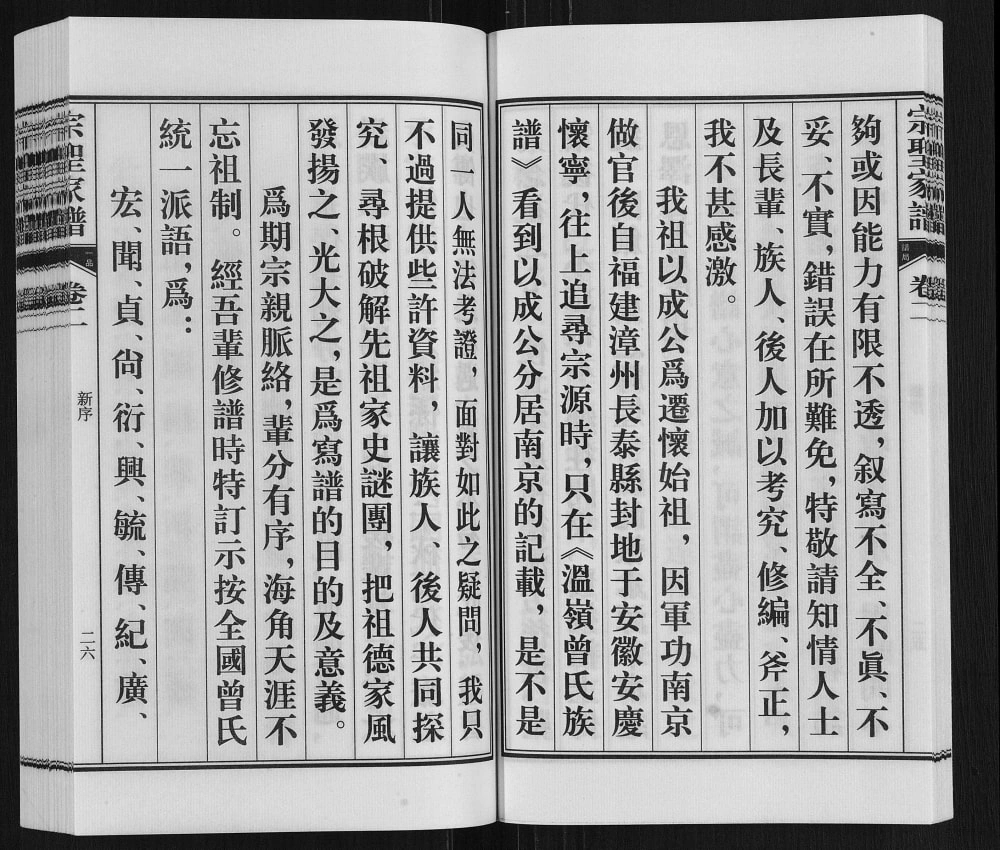 宗聖家譜 卷二
夠或因能力有限不透，叙寫不全、不眞、不
妥、不實，錯誤在所難免，特敬請知情人士
及長輩、族人、後人加以考究、修編、斧正，
我不甚感激。
我祖以成公爲遷懷始祖，因軍功南京
做官後自福建漳州長泰縣封地于安徽安慶
懷寧，往上追尋宗源時，只在《溫嶺曾氏族
譜》看到以成公分居南京的記載，是不是
同一人無法考證，面對如此之疑問，我只
不過提供些許資料，讓族人、後人共同探
究、尋根破解先祖家史謎團，把祖德家風
發揚之、光大之，是爲寫譜的目的及意義。
爲期宗親脈絡，輩分有序，海角天涯不
忘祖制。經吾輩修譜時特訂示按全國曾氏
統一派語，爲：
宏、聞、貞、尙、衍、興、毓、傳、紀、廣、
宗聖家譜 一品 卷二 新序 二六